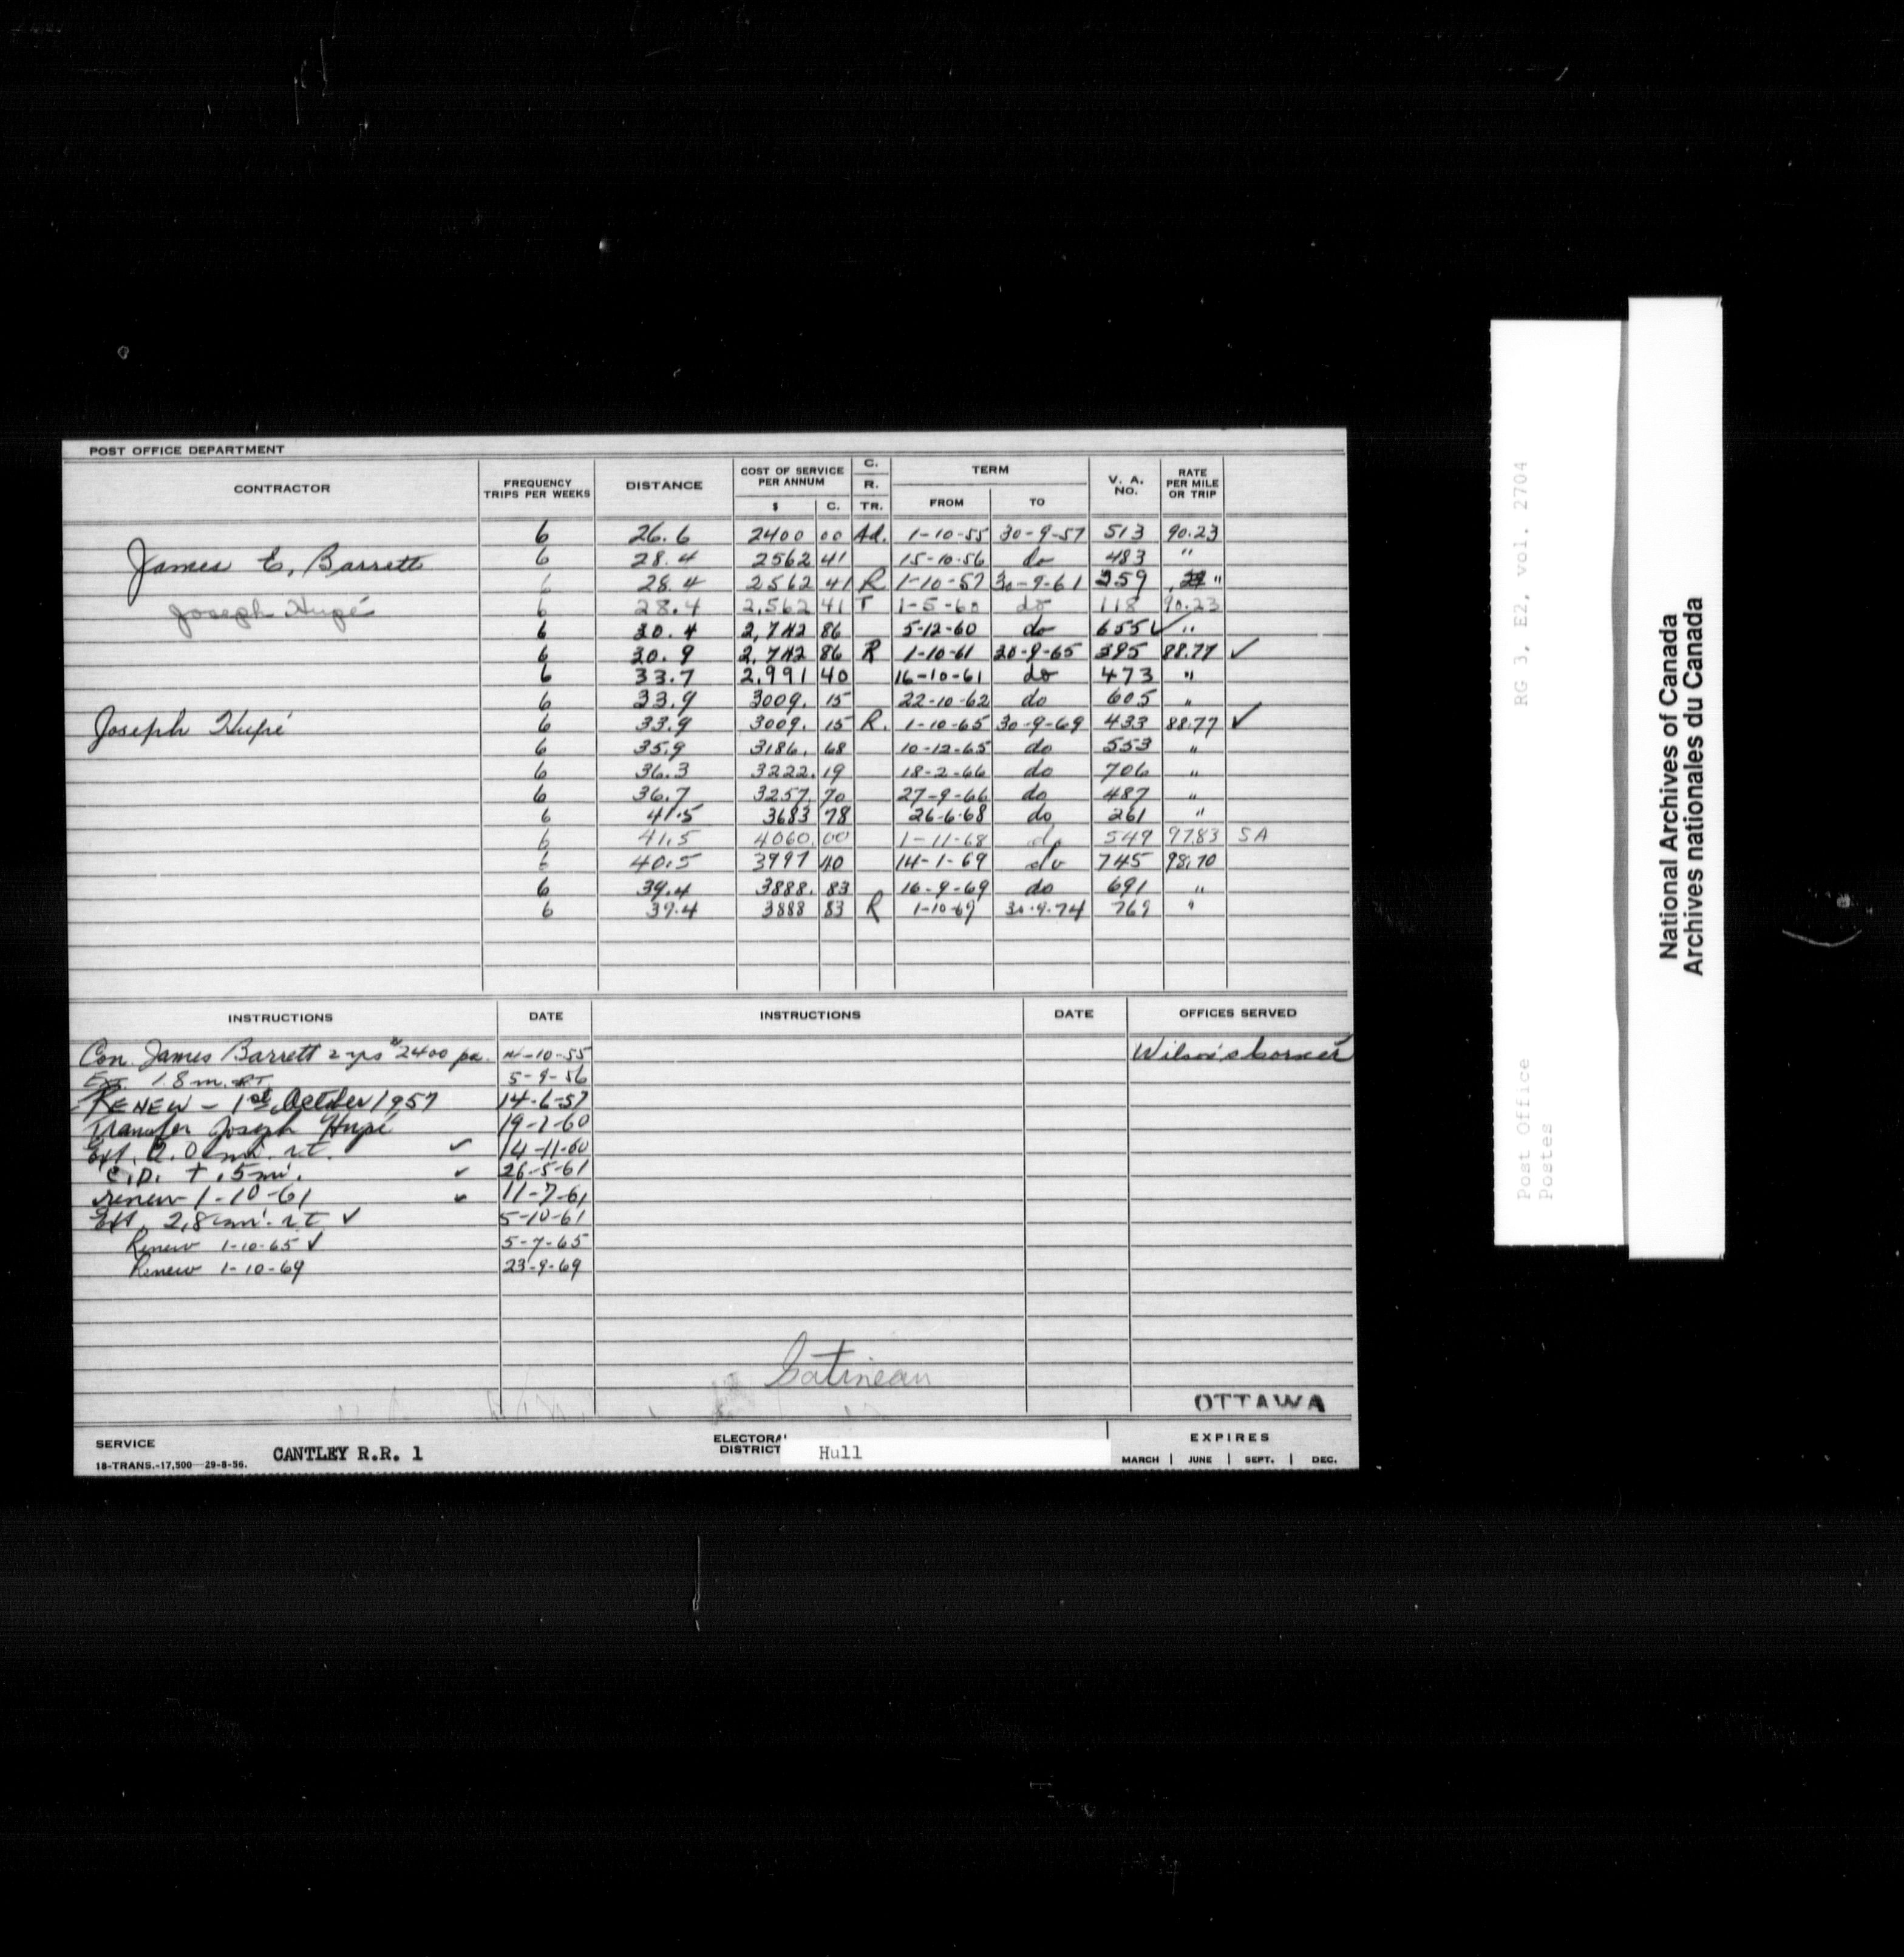 POST OFFICE DEPARTMENT
CONTRACTOR FREQUENCY TRIPS PER WEEKS DISTANCE COST OF SERVICE PER ANNUM $ C. C. R. TR. TERM FROM TO V. A. NO. RATE PER MILE OR TRIP
6 26.6 2400 00 Ad. 1-10-55 30-9-57 513 90.23
James E. Barrett 6 28.4 2562 41 15-10-56 do 483 "
6 28.4 2562 41 R 1-10-57 30-9-61 359 "
Joseph Hupé 6 28.4 2,562 41 T 1-5-60 do 118 90.23
6 30.4 2,742 86 5-12-60 do 655 ✓ "
6 30.9 2,742 86 R 1-10-61 30-9-65 395 88.77 ✓
6 33.7 2,991 40 16-10-61 do 473 "
6 33.9 3009. 15 22-10-62 do 605 "
Joseph Hupé 6 33.9 3009. 15 R. 1-10-65 30-9-69 433 88.77 ✓
6 35.9 3186. 68 10-12-65 do 553 "
6 36.3 3222. 19 18-2-66 do 706 "
6 36.7 3257. 70 27-9-66 do 487 "
6 41.5 3683 78 26-6-68 do 261 "
6 41.5 4060. 00 1-11-68 do 549 97.83 SA
6 40.5 3997 40 14-1-69 do 745 98.70
6 39.4 3888. 83 16-9-69 do 691 "
6 39.4 3888 83 R 1-10-69 30-9-74 769 "
INSTRUCTIONS DATE INSTRUCTIONS DATE OFFICES SERVED
Con. James Barrett 2 yrs $2400 pa. 10-55 Wilson's Corner
Ex. 1.8 m. RT 5-9-56
RENEW - 1st October 1957 14-6-57
Transfer Joseph Hupé 60
Ext. 2.0 mi. r.t. ✓ 14-11-60
C.D. + .5 mi. ✓ 26-5-61
renew 1-10-61 ✓ 11-7-61
Ext. 2.8 mi. r.t. ✓ 5-10-61
Renew 1-10-65 ✓ 5-7-65
Renew 1-10-69 23-9-69
Gatineau
OTTAWA
SERVICE CANTLEY R.R. 1
18-TRANS.-17,500—29-8-56.
ELECTORAL DISTRICT Hull
EXPIRES
MARCH | JUNE | SEPT. | DEC.
Post Office RG 3, E2, vol. 2704
Postes
National Archives of Canada
Archives nationales du Canada